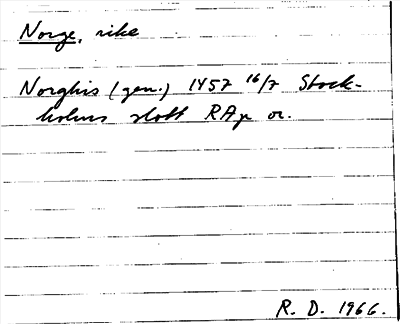 Norge, rike
Norghis (gen.) 1457 16/7 Stock-
holms slott RAp or.
R. D. 1966.